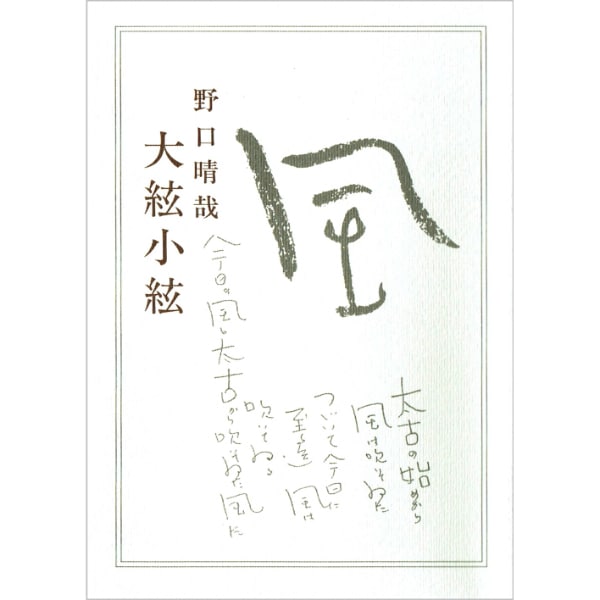 野口晴哉
大絃小絃
風
太古の始めから
風は吹いてゐた
つゞいて今日に
至る迄 風は
吹いてゐる
今日の風も太古から吹いてゐた風だ